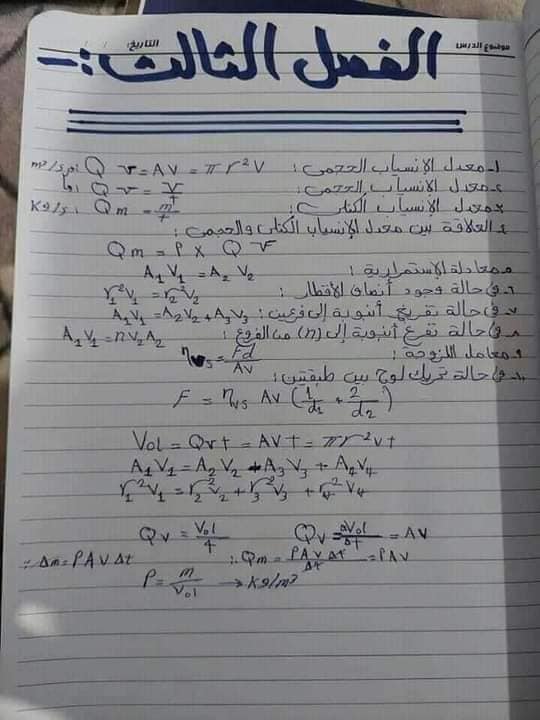 موضوع الدرس: التاريخ: / /
الفصل الثالث:-
١- معدل الإنسياب الحجمى: Q v = AV = π r² V م³/ث m³/s
٢- معدل الإنسياب الحجمى: Q v = V/t
٣- معدل الإنسياب الكتلى: Q m = m/t Kg/s
٤- العلاقة بين معدل الإنسياب الكتلى والحجمى:
Q m = ρ x Q v
٥- معادلة الإستمرارية: A₁ V₁ = A₂ V₂
٦- فى حالة وجود أنصاف الأقطار: r₁² V₁ = r₂² V₂
٧- فى حالة تفريغ أنبوبة إلى فرعين: A₁V₁ = A₂V₂ + A₃V₃
٨- فى حالة تفرع أنبوبة إلى (n) من الفروع: A₁V₁ = nV₂A₂
٩- معامل اللزوجة: ηvs = Fd/AV
١٠- فى حالة تحريك لوح بين طبقتين:
F = ηvs AV (1/d₁ + 2/d₂)
Vol = Qvt = AVt = πr²vt
A₁V₁ = A₂V₂ + A₃V₃ + A₄V₄
r₁²V₁ = r₂²V₂ + r₃²V₃ + r₄²V₄
Qv = Vol/t Qv = ΔVol/Δt = AV
∴ Δm = ρAVΔt ∴ Qm = ρAVΔt/Δt = ρAV
ρ = m/Vol → Kg/m³